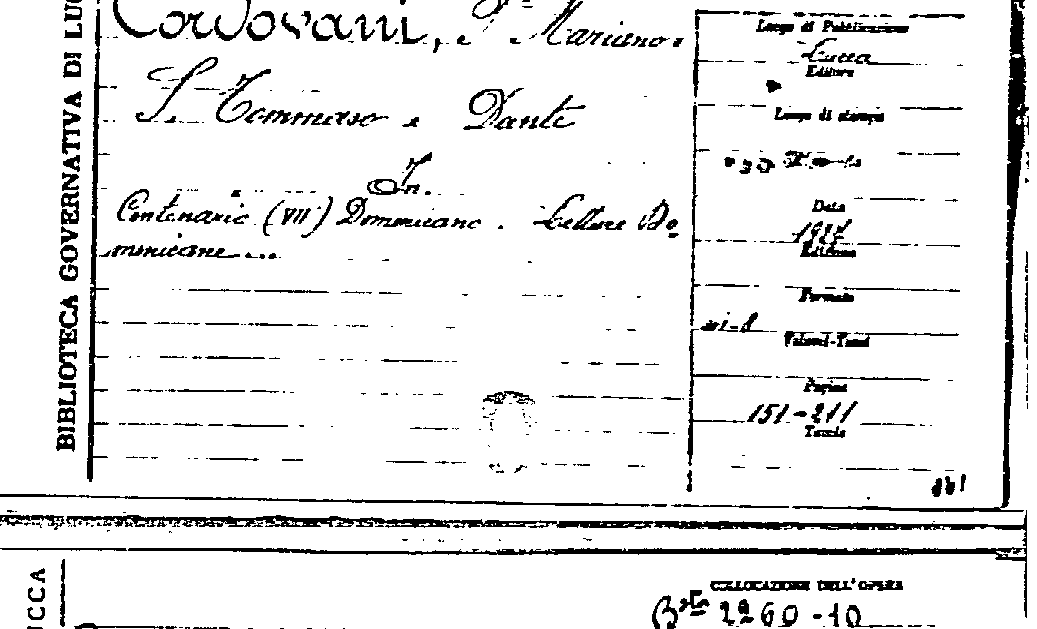 BIBLIOTECA GOVERNATIVA DI LUC
Cordovani, P. Mariano.
S. Tommaso e Dante
In.
Centenario (VII) Dommicano. Letture Do
mmicane...
Luogo di Pubblicazione
Lucca
Editore
Luogo di stampa
Data
1927
Edizione
Formato
in-8
Volumi-Tomi
Pagine
151-211
Tavole
COLLOCAZIONE DELL'OPERA
2260-10
UCCA